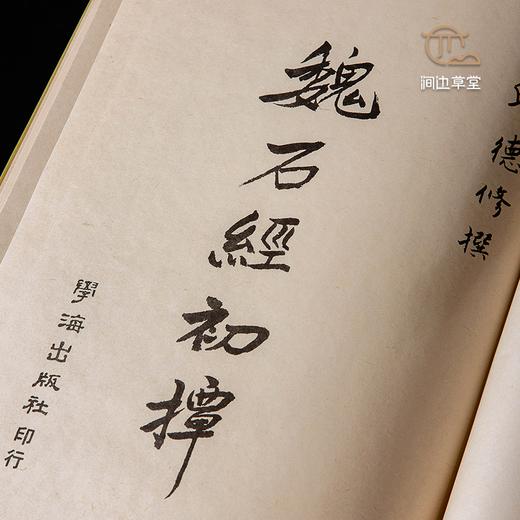 涧边草堂
德修撰
魏石經初撢
學海出版社印行